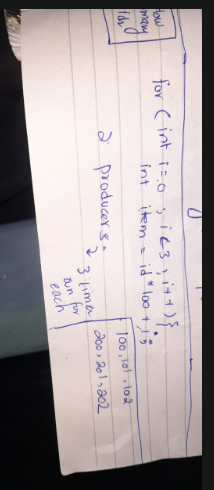 how
many
ids
for ( int i=0 ; i<3 ; i++) {
int item = id * 100 + i;
2 producers =
3 times
run for
each
100, 101, 102
200, 201, 202